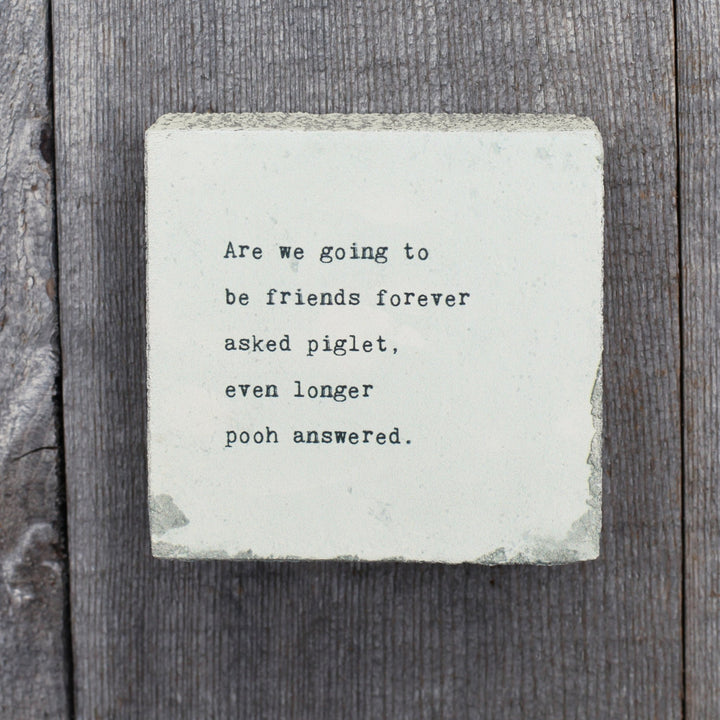 Are we going to
be friends forever
asked piglet,
even longer
pooh answered.